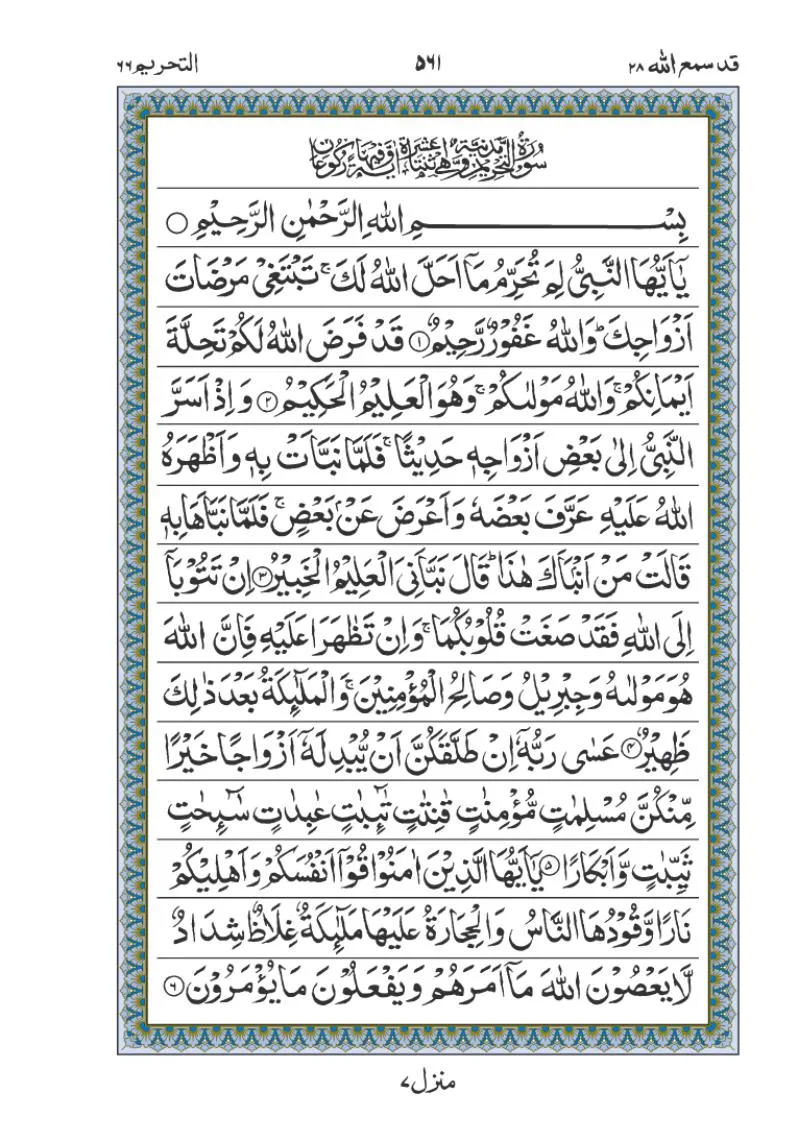 قد سمع الله ٢٨
٥٦١
التحريم ٦٦
سُوْرَةُ التَّحْرِيْمِ مَدَنِيَّةٌ وَّهِيَ اثْنَتَا عَشْرَةَ اٰيَةً وَّفِيْهَا رُكُوْعَانِ
بِسْمِ اللّٰهِ الرَّحْمٰنِ الرَّحِيْمِ ○
يٰٓاَيُّهَا النَّبِىُّ لِمَ تُحَرِّمُ مَآ اَحَلَّ اللّٰهُ لَكَ ۚ تَبْتَغِىْ مَرْضَاتَ
اَزْوَاجِكَ ؕ وَاللّٰهُ غَفُوْرٌ رَّحِيْمٌ ١ قَدْ فَرَضَ اللّٰهُ لَكُمْ تَحِلَّةَ
اَيْمَانِكُمْ ۚ وَاللّٰهُ مَوْلٰىكُمْ ۚ وَهُوَ الْعَلِيْمُ الْحَكِيْمُ ٢ وَاِذْ اَسَرَّ
النَّبِىُّ اِلٰى بَعْضِ اَزْوَاجِهٖ حَدِيْثًا ۚ فَلَمَّا نَبَّاَتْ بِهٖ وَاَظْهَرَهُ
اللّٰهُ عَلَيْهِ عَرَّفَ بَعْضَهٗ وَاَعْرَضَ عَنْۢ بَعْضٍ ۚ فَلَمَّا نَبَّاَهَا بِهٖ
قَالَتْ مَنْ اَنْۢبَاَكَ هٰذَا ؕ قَالَ نَبَّاَنِىَ الْعَلِيْمُ الْخَبِيْرُ ٣ اِنْ تَتُوْبَآ
اِلَى اللّٰهِ فَقَدْ صَغَتْ قُلُوْبُكُمَا ۚ وَاِنْ تَظٰهَرَا عَلَيْهِ فَاِنَّ اللّٰهَ
هُوَ مَوْلٰىهُ وَجِبْرِيْلُ وَصَالِحُ الْمُؤْمِنِيْنَ ۚ وَالْمَلٰٓئِكَةُ بَعْدَ ذٰلِكَ
ظَهِيْرٌ ٤ عَسٰى رَبُّهٗٓ اِنْ طَلَّقَكُنَّ اَنْ يُّبْدِلَهٗٓ اَزْوَاجًا خَيْرًا
مِّنْكُنَّ مُسْلِمٰتٍ مُّؤْمِنٰتٍ قٰنِتٰتٍ تٰٓئِبٰتٍ عٰبِدٰتٍ سٰٓئِحٰتٍ
ثَيِّبٰتٍ وَّاَبْكَارًا ٥ يٰٓاَيُّهَا الَّذِيْنَ اٰمَنُوْا قُوْٓا اَنْفُسَكُمْ وَاَهْلِيْكُمْ
نَارًا وَّقُوْدُهَا النَّاسُ وَالْحِجَارَةُ عَلَيْهَا مَلٰٓئِكَةٌ غِلَاظٌ شِدَادٌ
لَّا يَعْصُوْنَ اللّٰهَ مَآ اَمَرَهُمْ وَيَفْعَلُوْنَ مَا يُؤْمَرُوْنَ ٦
منزل ٧